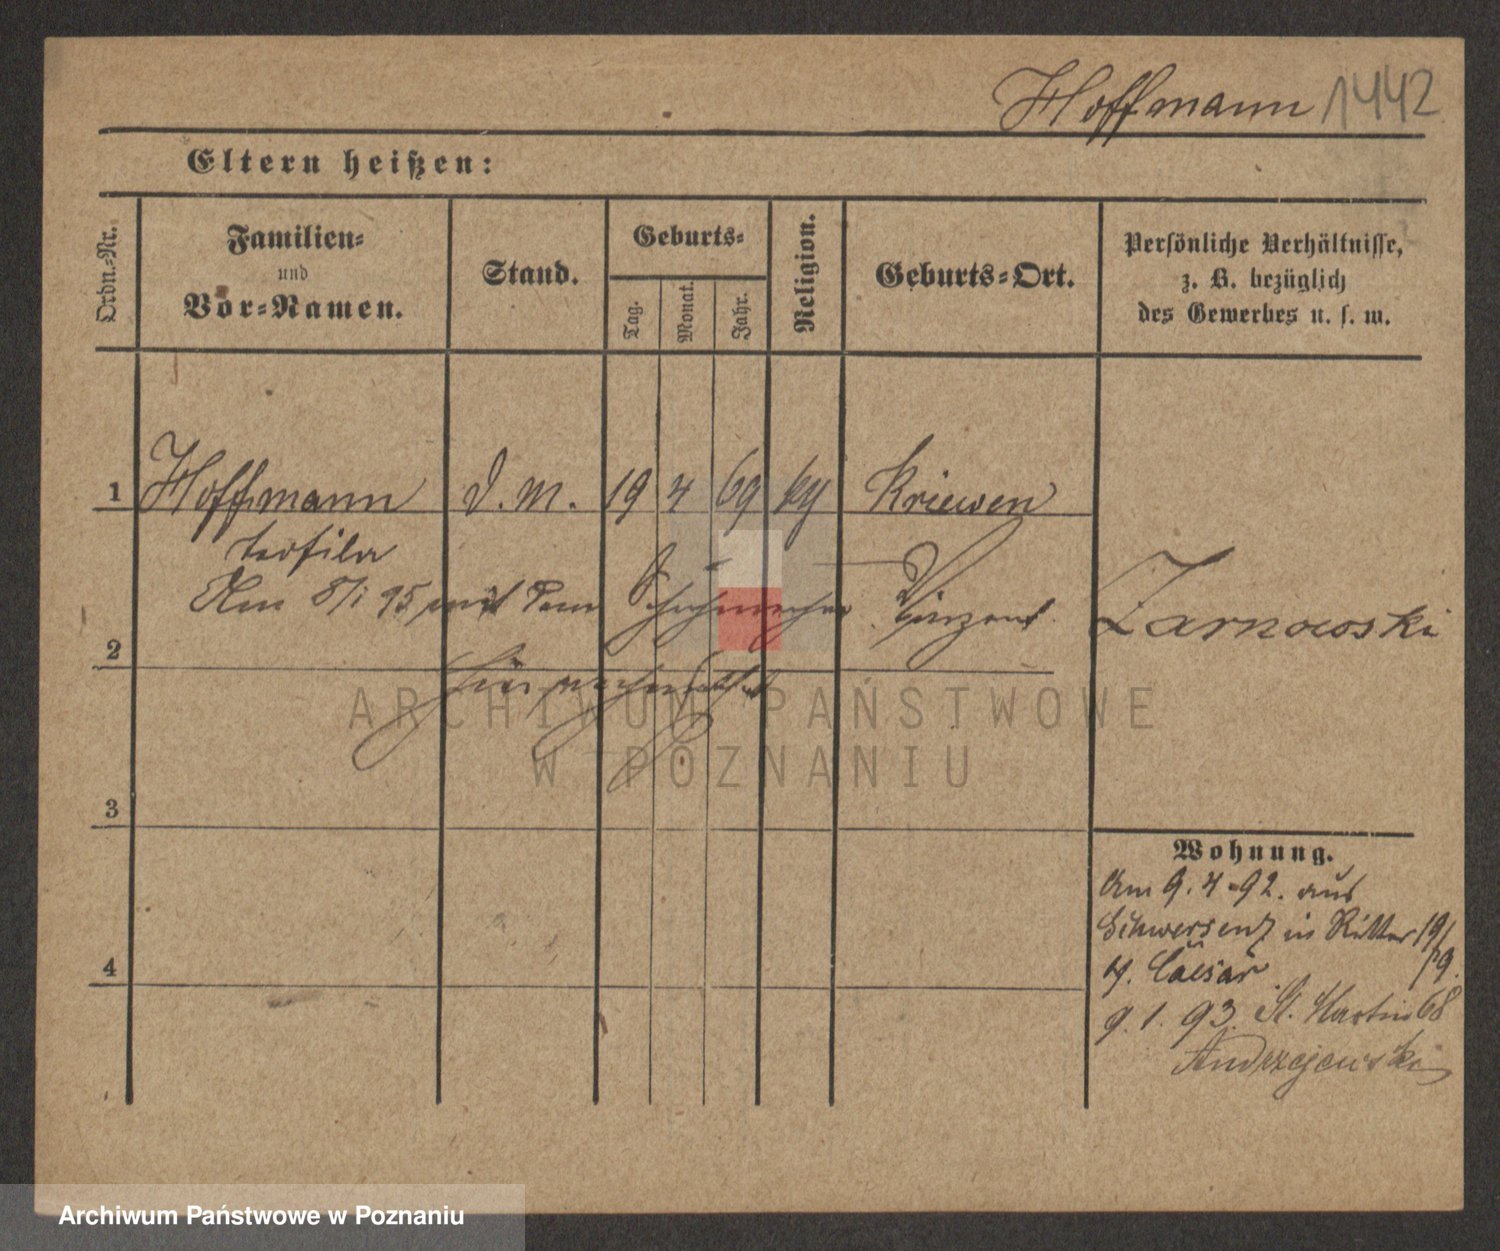 Hoffmann 1442
Eltern heißen:
Ordn.-Nr.
Familien-
und
Vor-Namen.
Stand.
Geburts-
Tag.
Monat.
Jahr.
Religion.
Geburts-Ort.
Persönliche Verhältnisse,
z. B. bezüglich
des Gewerbes u. s. w.
1 Hoffmann D. M. 19 4 69 kg Kriewen
Teofila
Am 8/1 95 mit dem Schuhmacher Vinzent Zarnowski
2
hier
3
4
Wohnung.
Am 9. 4. 92. aus
Schwersenz in Ritter 19/
b. Caesar 19.
9. 1. 93. St. Martin 68
Andrzejewski
ARCHIWUM PAŃSTWOWE
W POZNANIU
Archiwum Państwowe w Poznaniu